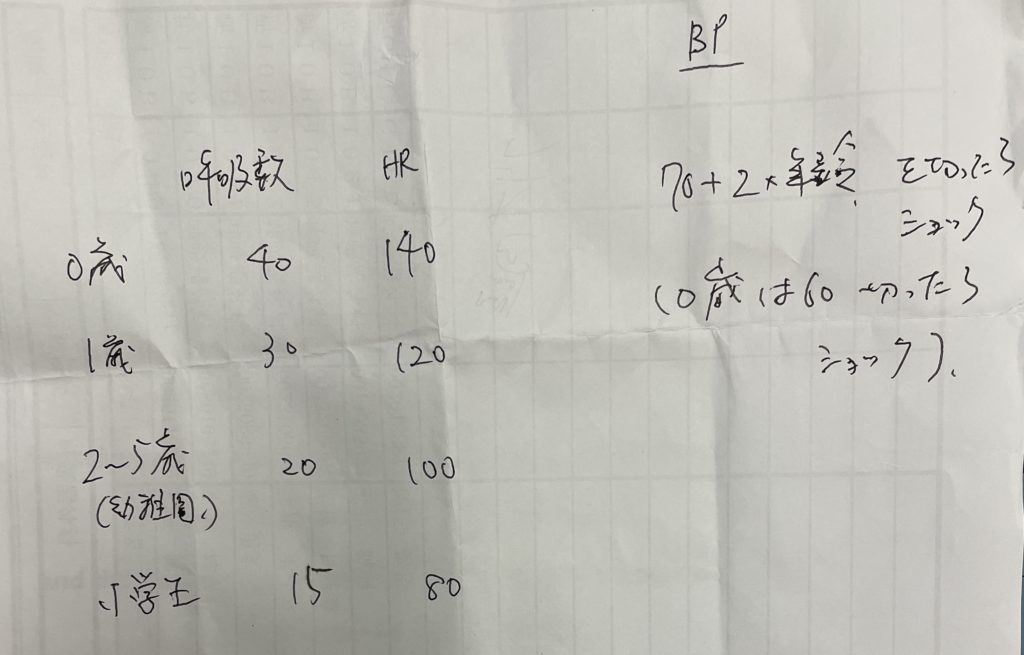 BP
呼吸数 HR
0歳 40 140
1歳 30 120
2〜5歳 20 100
(幼稚園)
小学生 15 80
70+2×年齢 を切ったら
ショック
(0歳は60切ったら
ショック).